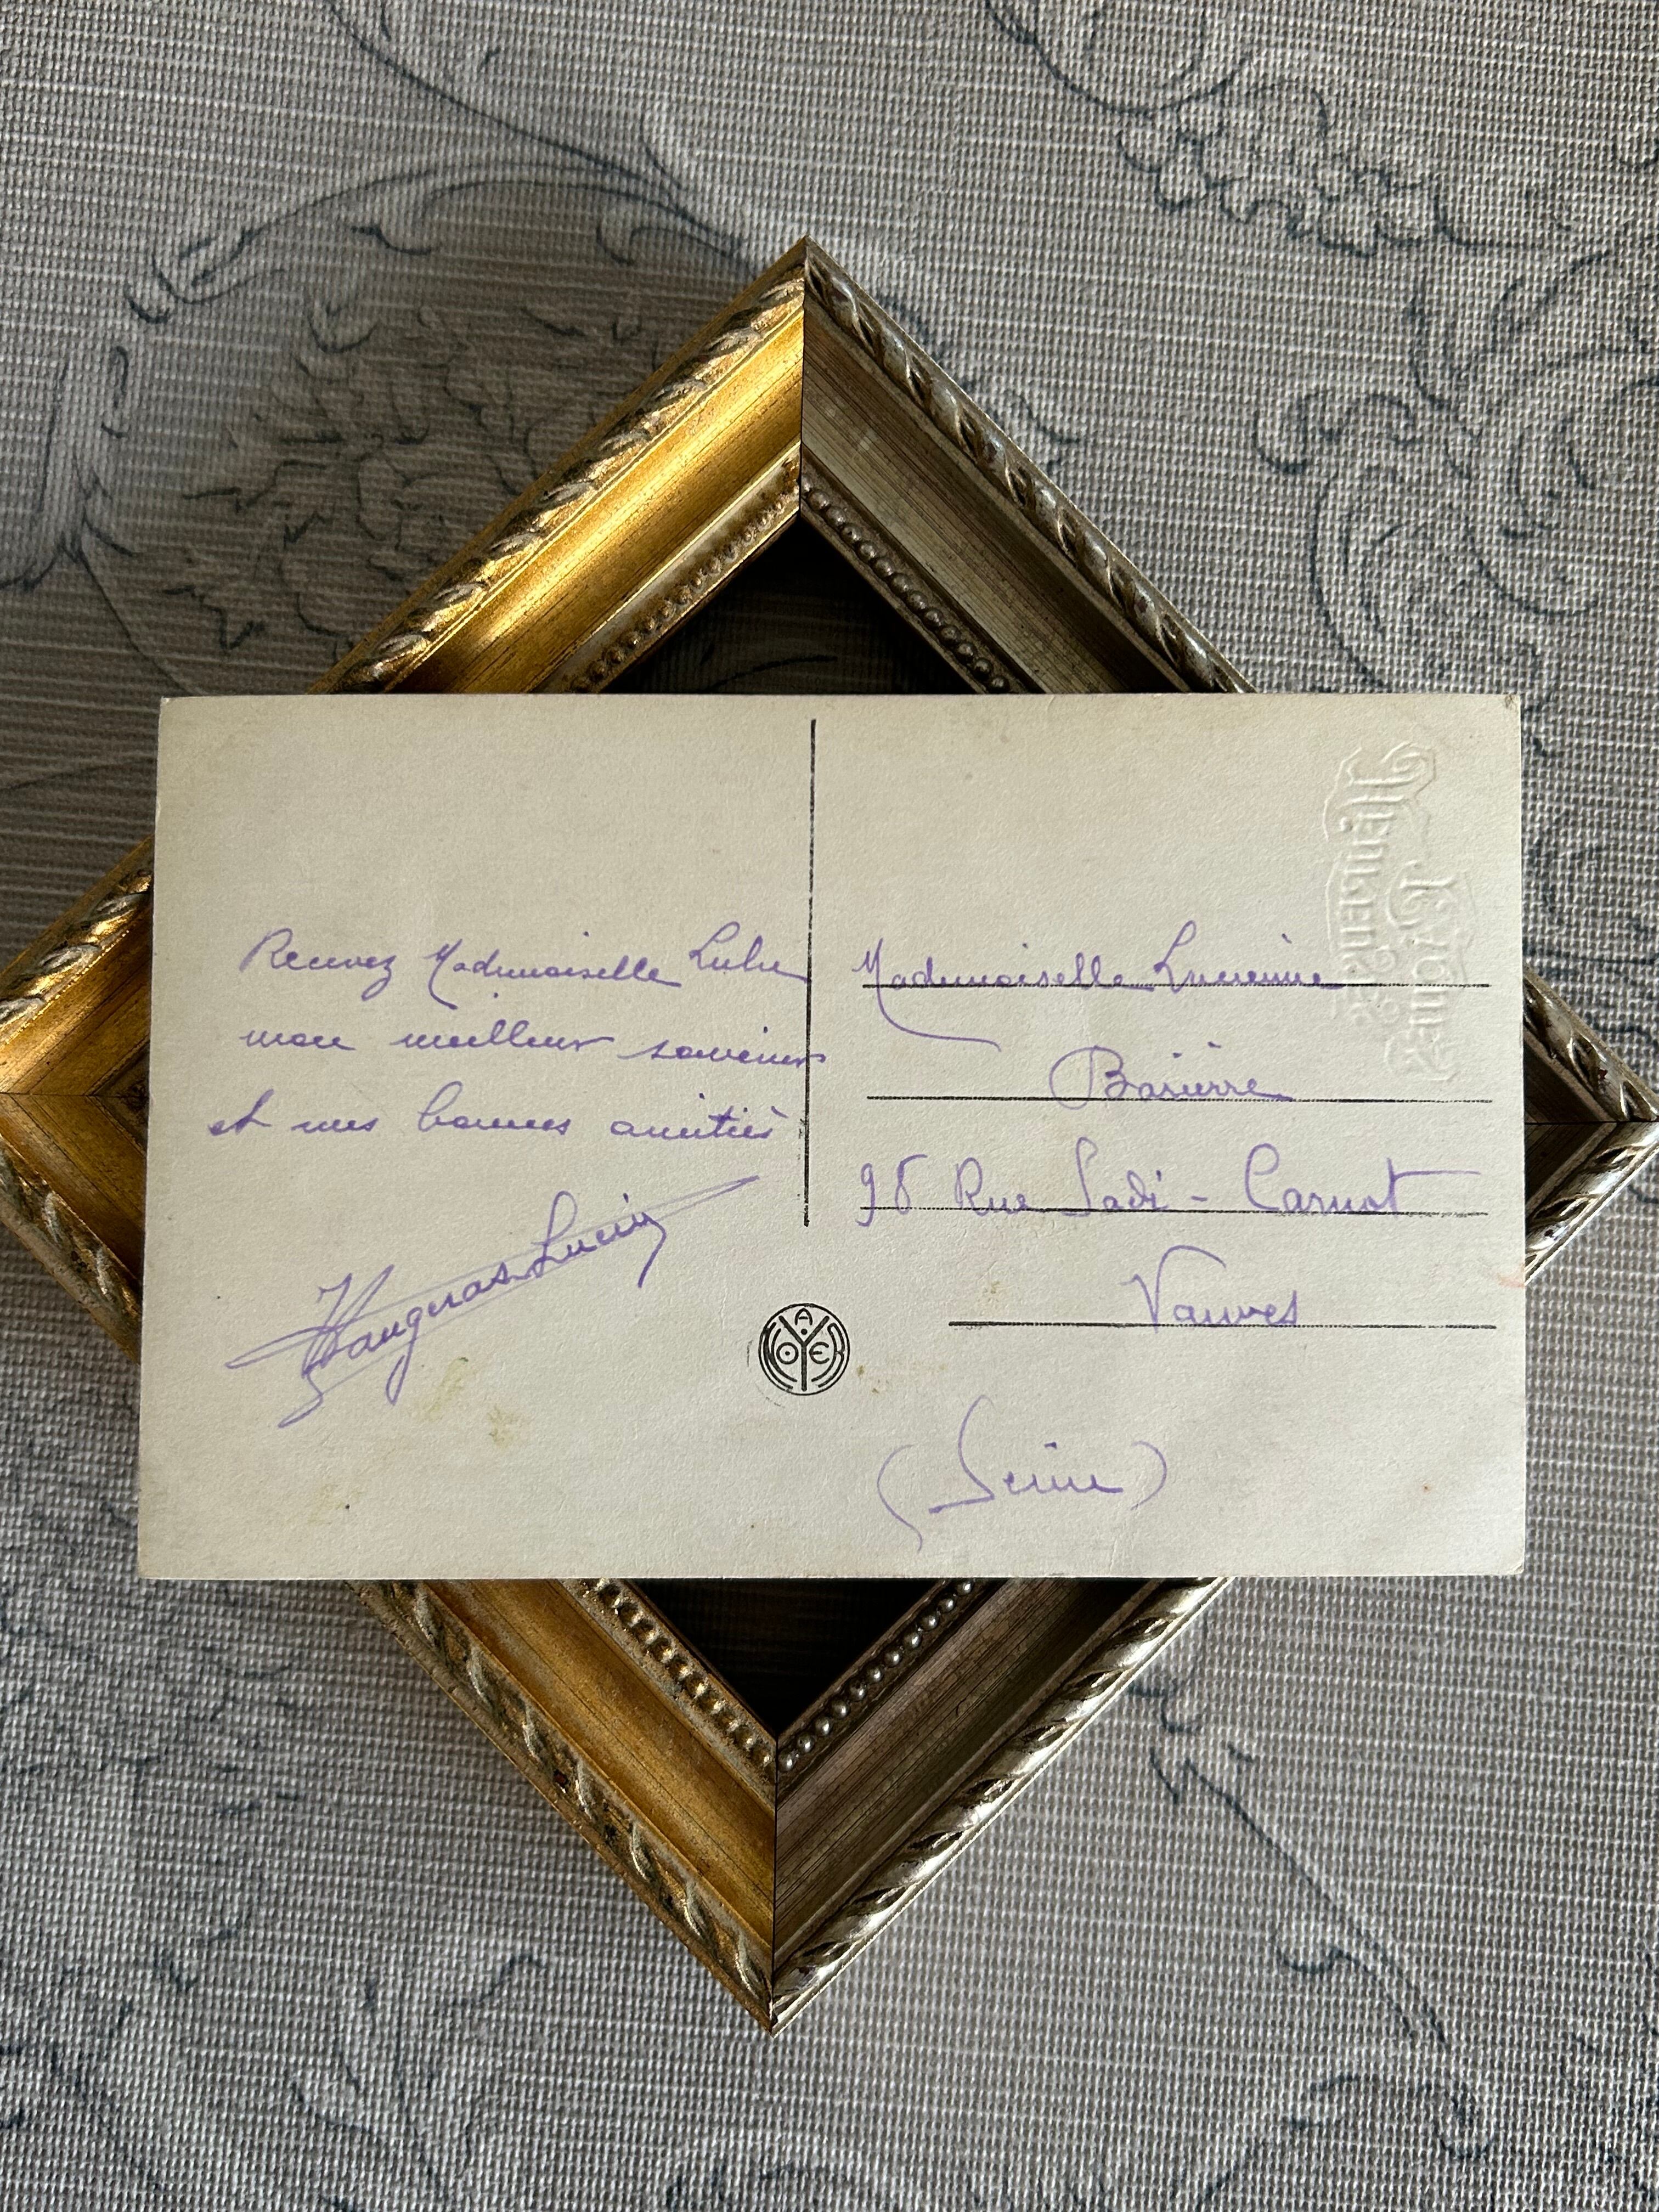 Recevez Mademoiselle Lulu
mon meilleur souvenir
et mes bonnes amitiés
Lucien
Mademoiselle Lucienne
98 Rue Sadi - Carnot
Vanves
(Seine)
A NOYER